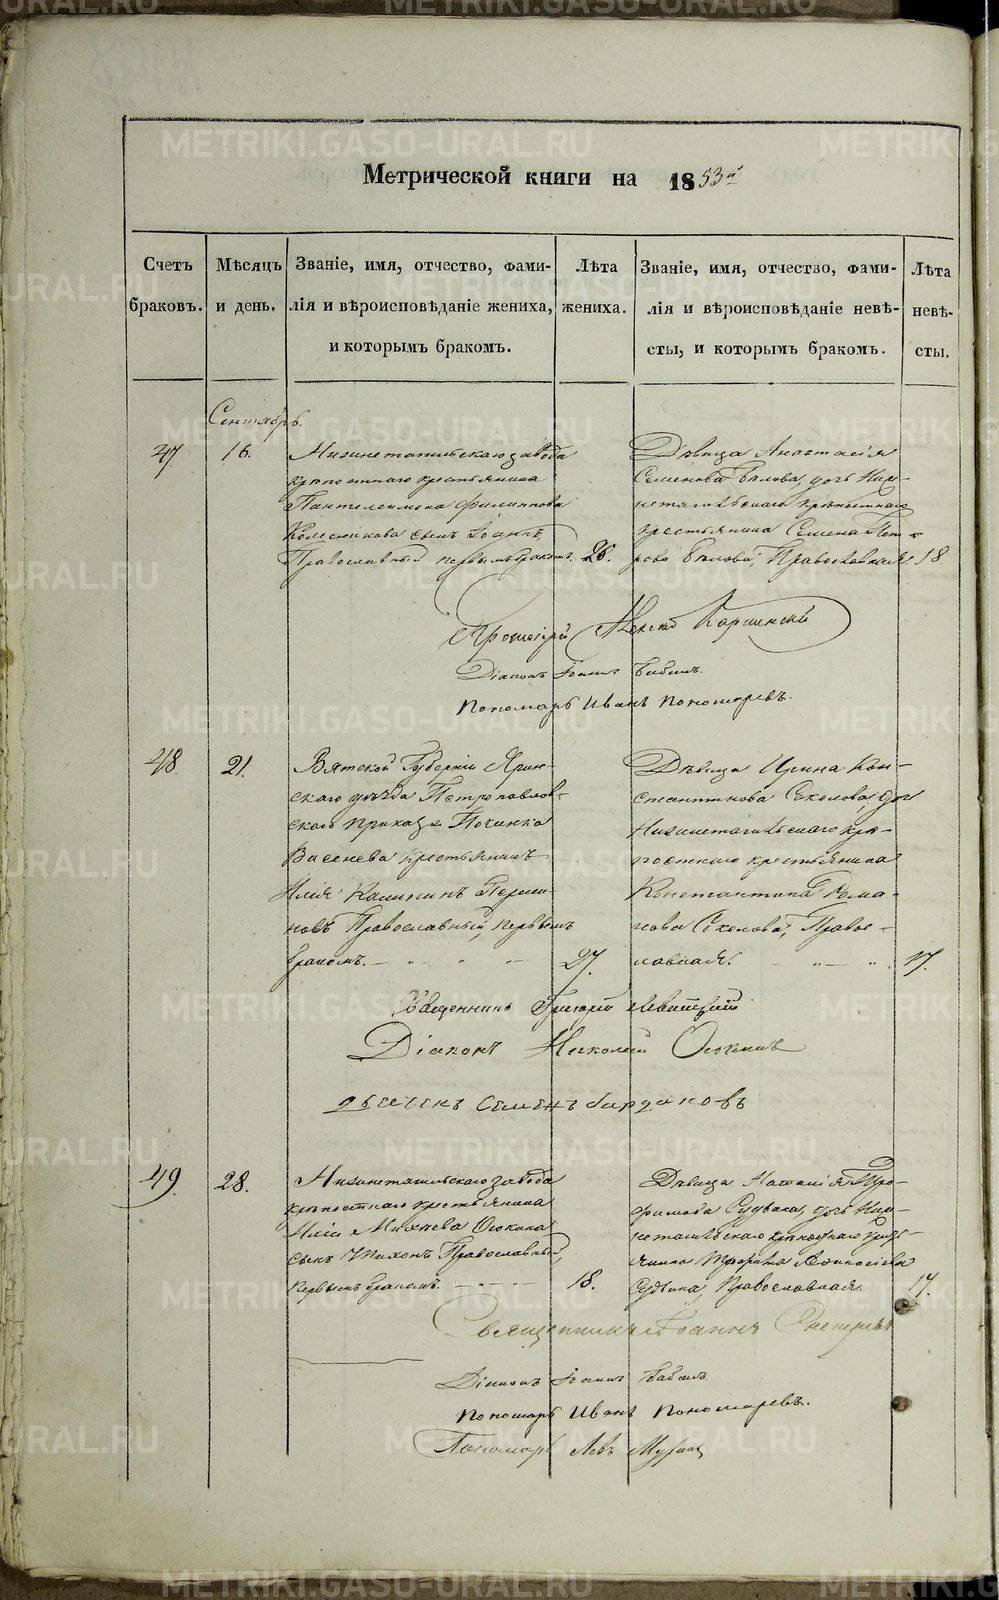 Метрической книги на 1853й
Счетъ браковъ.
Мѣсяцъ и день.
Званіе, имя, отчество, фами-
лія и вѣроисповѣданіе жениха,
и которымъ бракомъ.
Лѣта жениха.
Званіе, имя, отчество, фами-
лія и вѣроисповѣданіе невѣ-
сты, и которымъ бракомъ.
Лѣта невѣ-
сты.
Сентябрь.
47.
16.
Нижнетагильскаго завода
крѣпостнаго крестьянина
Пантелеимона Филиппова
Колесникова сынъ Іоаннъ,
Православный первымъ бракомъ.
26.
Дѣвица Анастасія
Семенова Бѣлова, дочь Ниж-
нетагильскаго крѣпостнаго
крестьянина Семена Пет-
рова Бѣлова, Православная.
18.
Протоіерей Карпинскій
Діаконъ Іоаннъ Бабинъ.
Пономарь Иванъ Пономаревъ.
48.
21.
Вятской Губерніи Яран-
скаго уѣзда Петропавлов-
скаго приказа Починка
Васенева крестьянинъ
Илія Калининъ Перми-
новъ Православный, первымъ
бракомъ.
27.
Дѣвица Ирина Кон-
стантинова Соколова, дочь
Нижнетагильскаго крѣ-
постнаго крестьянина
Константина Рома-
нова Соколова, Право-
славная.
17.
Священникъ Григорій Левитскій
Діаконъ Николай Осокинъ
Семенъ Бирдюковъ
49.
28.
Нижнетагильскаго завода
крѣпостнаго крестьянина
Иліи Михѣева Осокина
сынъ Тихонъ Православный,
первымъ бракомъ.
18.
Дѣвица Наталія Тро-
фимова Судвина, дочь Ниж-
нетагильскаго крѣпостнаго кресть-
янина Трофима
Судвина, Православная.
17.
Священникъ Іоаннъ
Діаконъ Іоаннъ Бабинъ
Пономарь Иванъ Пономаревъ.
Пономарь Левъ
METRIKI.GASO-URAL.RU